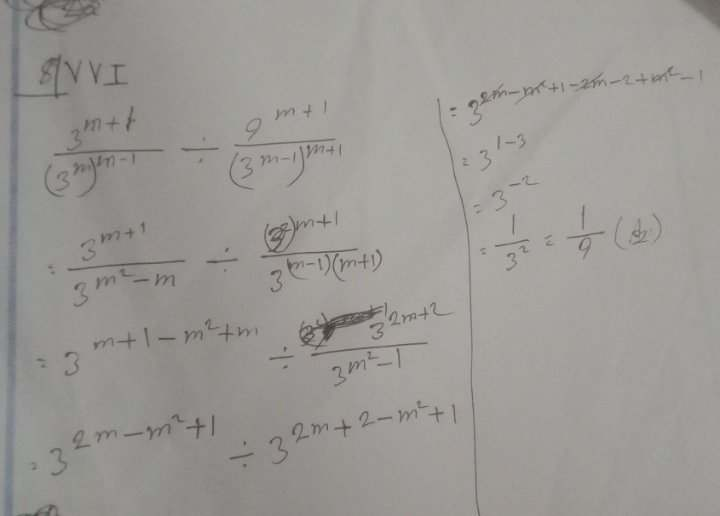 8/VVI
3^{m+1}/(3^m)^{m-1} ÷ 9^{m+1}/(3^{m-1})^{m+1}
= 3^{m+1}/3^{m²-m} ÷ (3²)^{m+1}/3^{(m-1)(m+1)}
= 3^{m+1-m²+m} ÷ 3^{2m+2}/3^{m²-1}
= 3^{2m-m²+1} ÷ 3^{2m+2-m²+1}
= 3^{2m-m²+1-2m-2+m²-1}
= 3^{1-3}
= 3^{-2}
= 1/3² = 1/9